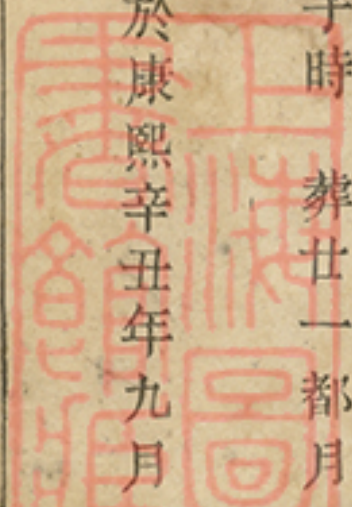 子時　葬廿一都月
於康熙辛丑年九月
上海圖書館藏